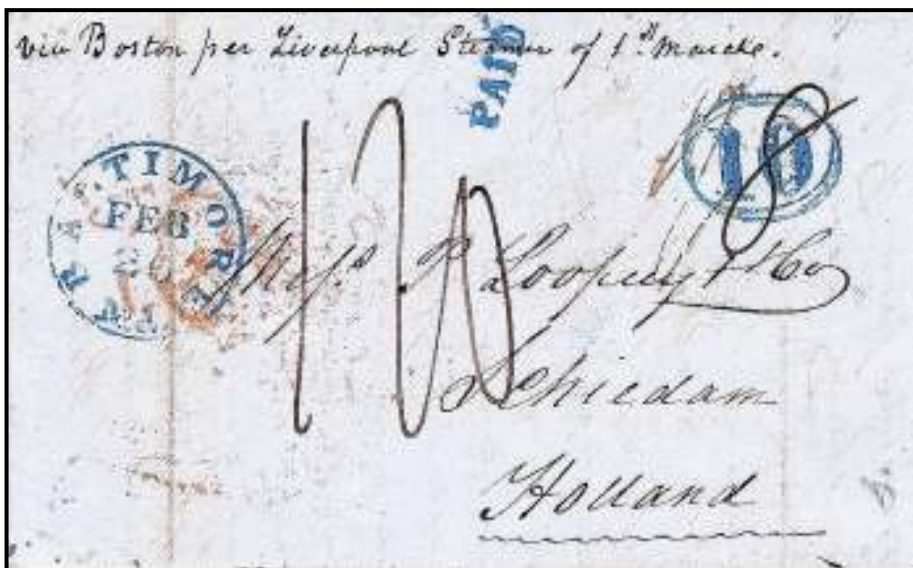 via Boston per Liverpool Steamer of 1st Marche.
PAID
10
8
BALTIMORE Md.
FEB
Mess. P. Loopuyt & Co
Schiedam
Holland